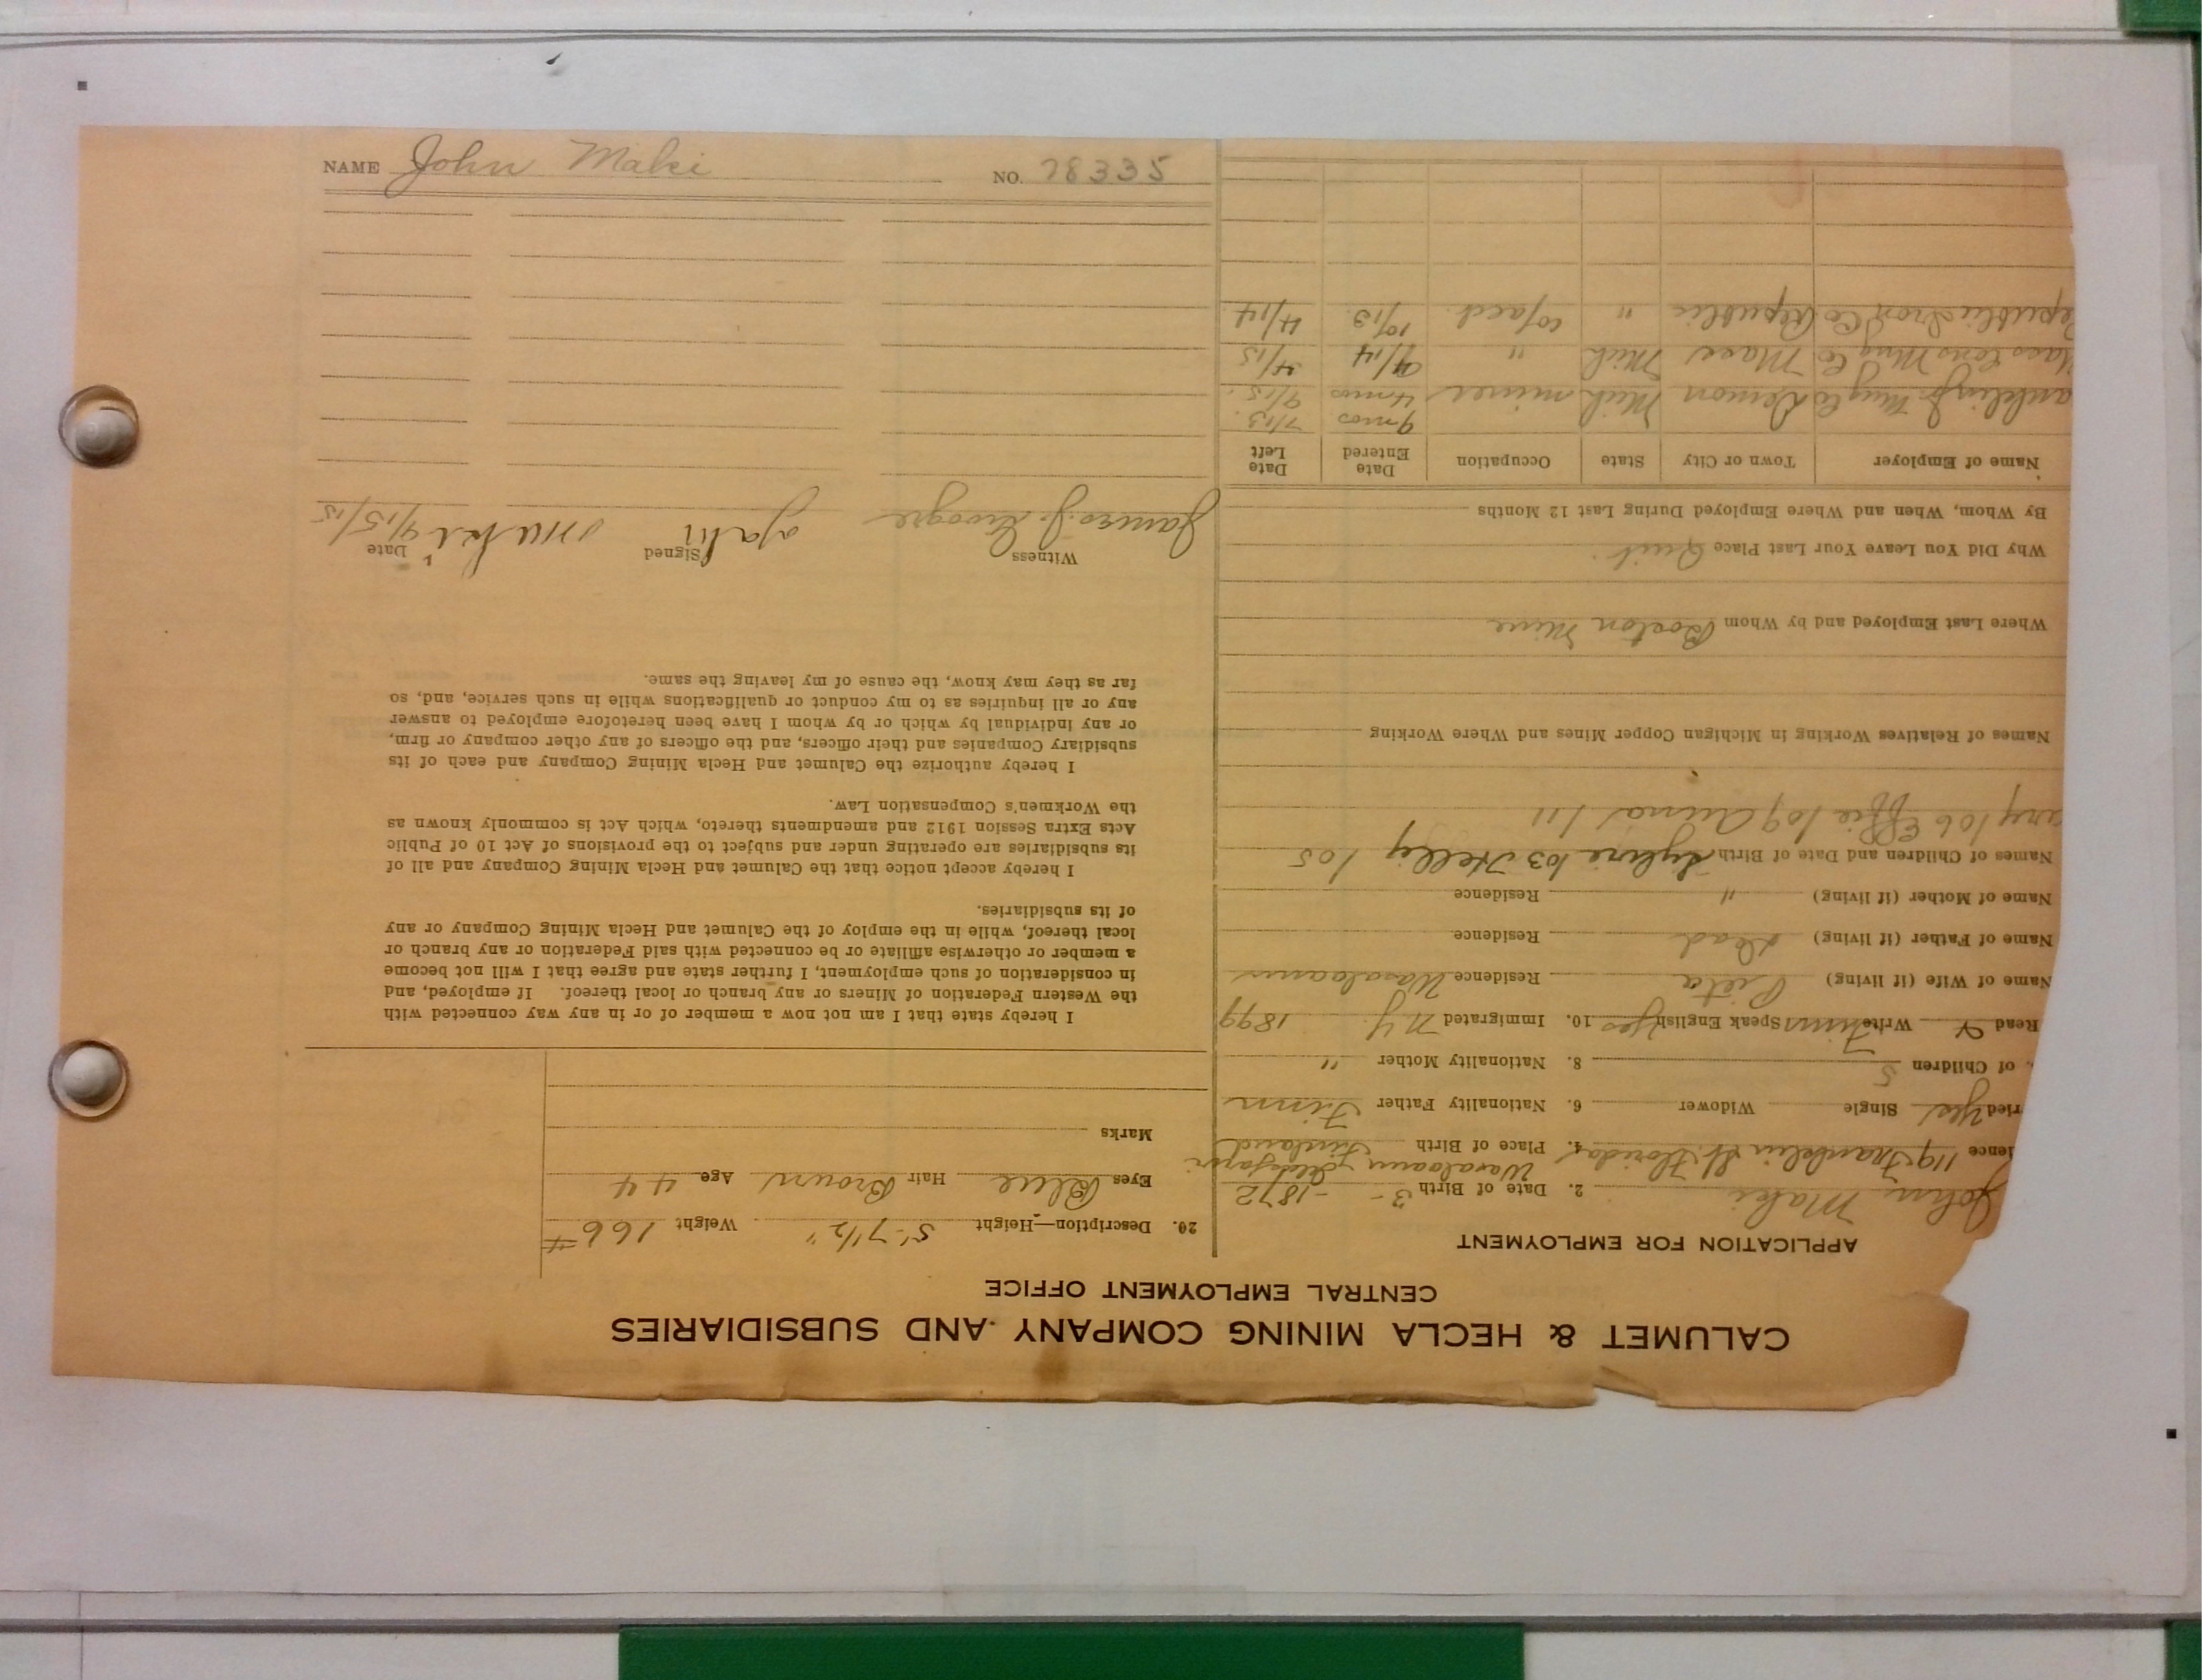 CALUMET & HECLA MINING COMPANY AND SUBSIDIARIES
CENTRAL EMPLOYMENT OFFICE
APPLICATION FOR EMPLOYMENT
John Maki 2. Date of Birth 3- -1872
ence 119 Franklin St. Florida 4. Place of Birth Finland
ried Yes Single Widower 6. Nationality Father Finn
. of Children 5 8. Nationality Mother "
Read Write Finn Speak English Yes 10. Immigrated N.Y. 1899
Name of Wife (if living) Residence
Name of Father (if living) Dead Residence
Name of Mother (if living) " Residence
Names of Children and Date of Birth 103 105
106 109 111
Names of Relatives Working in Michigan Copper Mines and Where Working
Where Last Employed and by Whom Boston Mine
Why Did You Leave Your Last Place Quit.
By Whom, When and Where Employed During Last 12 Months
Name of Employer Town or City State Occupation Date Entered Date Left
9 mos 7/13.
anklin Mng Co Demon Mich miner 4 mos 9/15.
Mass Cons Mng Co Mass Mich " 4/15
epublic Iron Co Republic " 10/13 4/14
20. Description—Height 5'-7 1/2" Weight 166 #
Eyes Blue Hair Brown Age 44
Marks
I hereby state that I am not now a member of or in any way connected with
the Western Federation of Miners or any branch or local thereof. If employed, and
in consideration of such employment, I further state and agree that I will not become
a member or otherwise affiliate or be connected with said Federation or any branch or
local thereof, while in the employ of the Calumet and Hecla Mining Company or any
of its subsidiaries.
I hereby accept notice that the Calumet and Hecla Mining Company and all of
its subsidiaries are operating under and subject to the provisions of Act 10 of Public
Acts Extra Session 1912 and amendments thereto, which Act is commonly known as
the Workmen's Compensation Law.
I hereby authorize the Calumet and Hecla Mining Company and each of its
subsidiary Companies and their officers, and the officers of any other company or firm,
or any individual by which or by whom I have been heretofore employed to answer
any or all inquiries as to my conduct or qualifications while in such service, and, so
far as they may know, the cause of my leaving the same.
Witness Signed Date
James J. John Maki 9/15/15
NAME John Maki NO. 28335